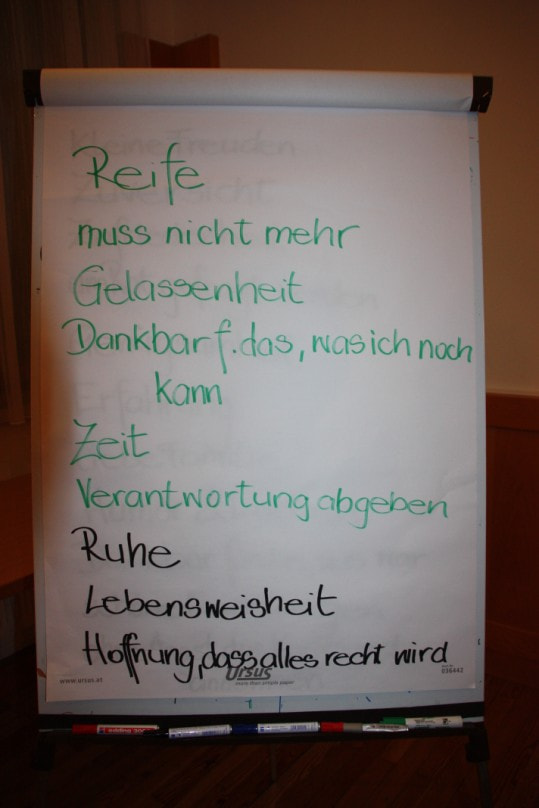 Reife
muss nicht mehr
Gelassenheit
Dankbar f. das, was ich noch
kann
Zeit
Verantwortung abgeben
Ruhe
Lebensweisheit
Hoffnung, dass alles recht wird
www.ursus.at
Ursus
036442